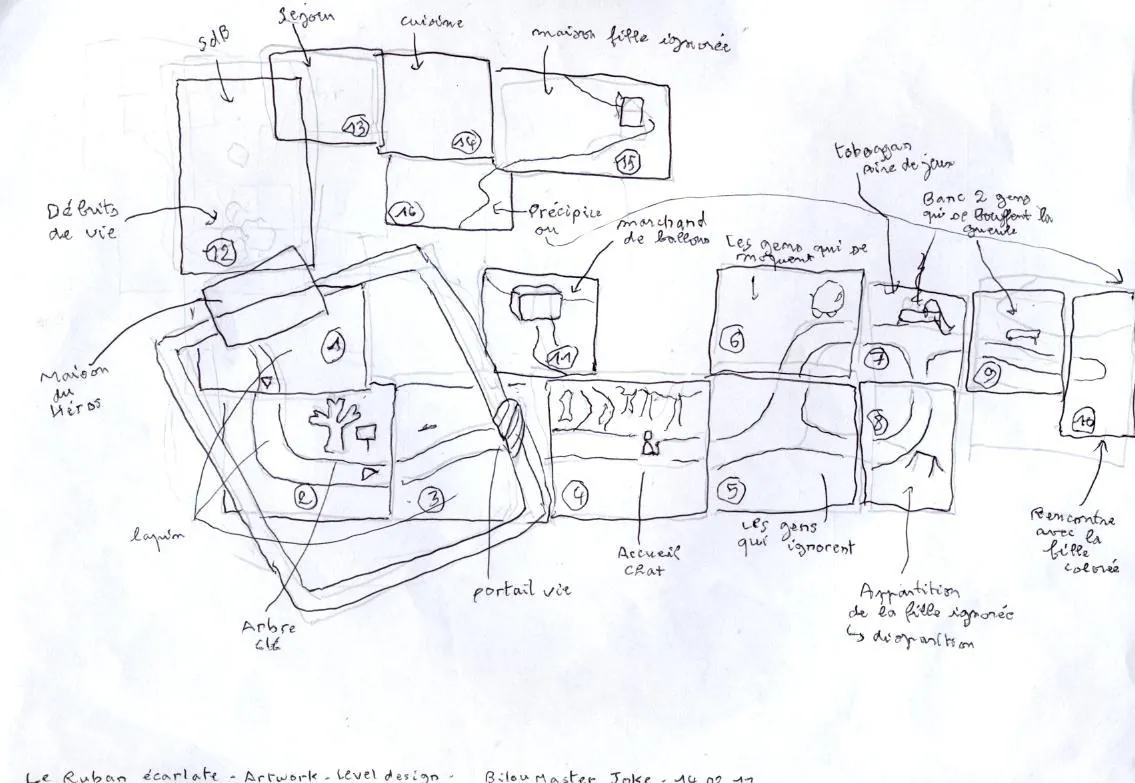 Séjour
cuisine
maison fille ignorée
SdB
13
14
15
16
Précipice
ou
toboggan
aire de jeux
Banc 2 gens
qui se bouffent la
gueule
Débuts
de vie
12
marchand
de ballons
Les gens qui se
moquent
Maison
du
Héros
1
11
6
7
9
10
2
3
4
5
8
lapin
Accueil
chat
Les gens
qui ignorent
portail vie
Rencontre
avec la
fille
colorée
Apparition
de la fille ignorée
↳ disparition
Arbre
Le Ruban écarlate - Artwork - Level design - Bilou Master Joke - 14 02 11